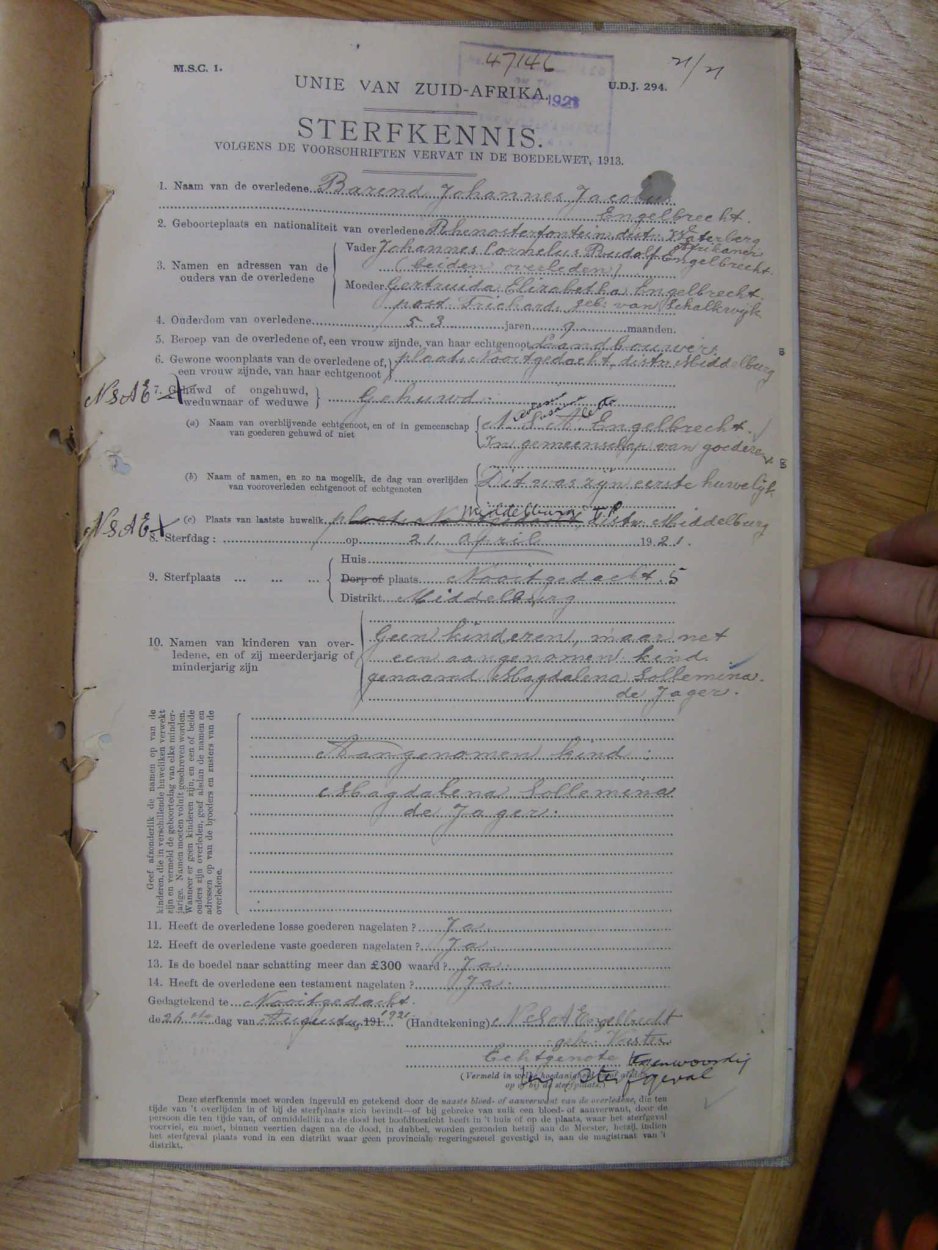 47146
M.S.C. 1.
U.D.J. 294.
UNIE VAN ZUID-AFRIKA.
STERFKENNIS.
VOLGENS DE VOORSCHRIFTEN VERVAT IN DE BOEDELWET, 1913.
1. Naam van de overledene Barend Johannes Jacobus
Engelbrecht.
2. Geboorteplaats en nationaliteit van overledene Rhenosterfontein distr. Waterberg
Afrikaner
3. Namen en adressen van de ouders van de overledene
Vader Johannes Cornelus Rudolf Engelbrecht.
(beiden overleden)
Moeder Gertruida Elizabetha Engelbrecht
post Trichard, geb: van Schalkwijk
4. Onderdom van overledene 53 jaren 9 maanden.
5. Beroep van de overledene of, een vrouw zijnde, van haar echtgenoot Landbouwer
6. Gewone woonplaats van de overledene of, een vrouw zijnde, van haar echtgenoot
plaats Nooitgedacht, distr. Middelburg
NSAE 7. Gehuwd of ongehuwd, weduwnaar of weduwe } Gehuwd
(a) Naam van overblijvende echtgenoot, en of in gemeenschap van goederen gehuwd of niet
N. S. A. Engelbrecht.
In gemeenschap van goederen
(b) Naam of namen, en zo na mogelik, de dag van overlijden van vooroverleden echtgenoot of echtgenoten
Dit was zijn eerste huwelijk
NSAE (c) Plaats van laatste huwelik Middelburg TP Distr. Middelburg
8. Sterfdag : op 21 April 1921.
9. Sterfplaats ... ... ...
Huis
Dorp of plaats Nooitgedacht. 5
Distrikt Middelburg
10. Namen van kinderen van overledene, en of zij meerderjarig of minderjarig zijn
Geen kinderen, maar net
een aangenomen kind.
genaamd Magdalena Sollemina
de Jager.
Geef afzonderlik de namen op van de kinderen, die in verschillende huweliken verwekt zijn en vermeld de geboortedag van elke minderjarige. Namen moeten voluit geschreven worden. Wanneer er geen kinderen zijn, en een of beide ouders zijn overleden, geef alsdan de namen en adressen op van de broeders en zusters van de overledene.
Aangenomen kind :
Magdalena Sollemina
de Jager.
11. Heeft de overledene losse goederen nagelaten ? Ja
12. Heeft de overledene vaste goederen nagelaten ? Ja
13. Is de boedel naar schatting meer dan £300 waard ? Ja.
14. Heeft de overledene een testament nagelaten ? Ja.
Gedagtekend te Nooitgedacht.
de 26ste dag van Augustus 191 1921 (Handtekening) N S A Engelbrecht
geb: Vorster
Echtgenote Teenwoordig
by sterfgeval
(Vermeld in welke hoedanigheid
op of bij de sterfplaats.)
Deze sterfkennis moet worden ingevuld en getekend door de naaste bloed- of aanverwant van de overledene, die ten
tijde van 't overlijden in of bij de sterfplaats zich bevindt—of bij gebreke van zulk een bloed- of aanverwant, door de
persoon die ten tijde van, of onmiddellik na de dood het hoofdtoezicht heeft in 't huis of op de plaats, waar het sterfgeval
voorviel, en moet, binnen veertien dagen na de dood, in dubbel, worden gezonden hetzij aan de Meester, herzij, indien
het sterfgeval plaats vond in een distrikt waar geen provinciale regeringszetel gevestigd is, aan de magistraat van 't
distrikt.